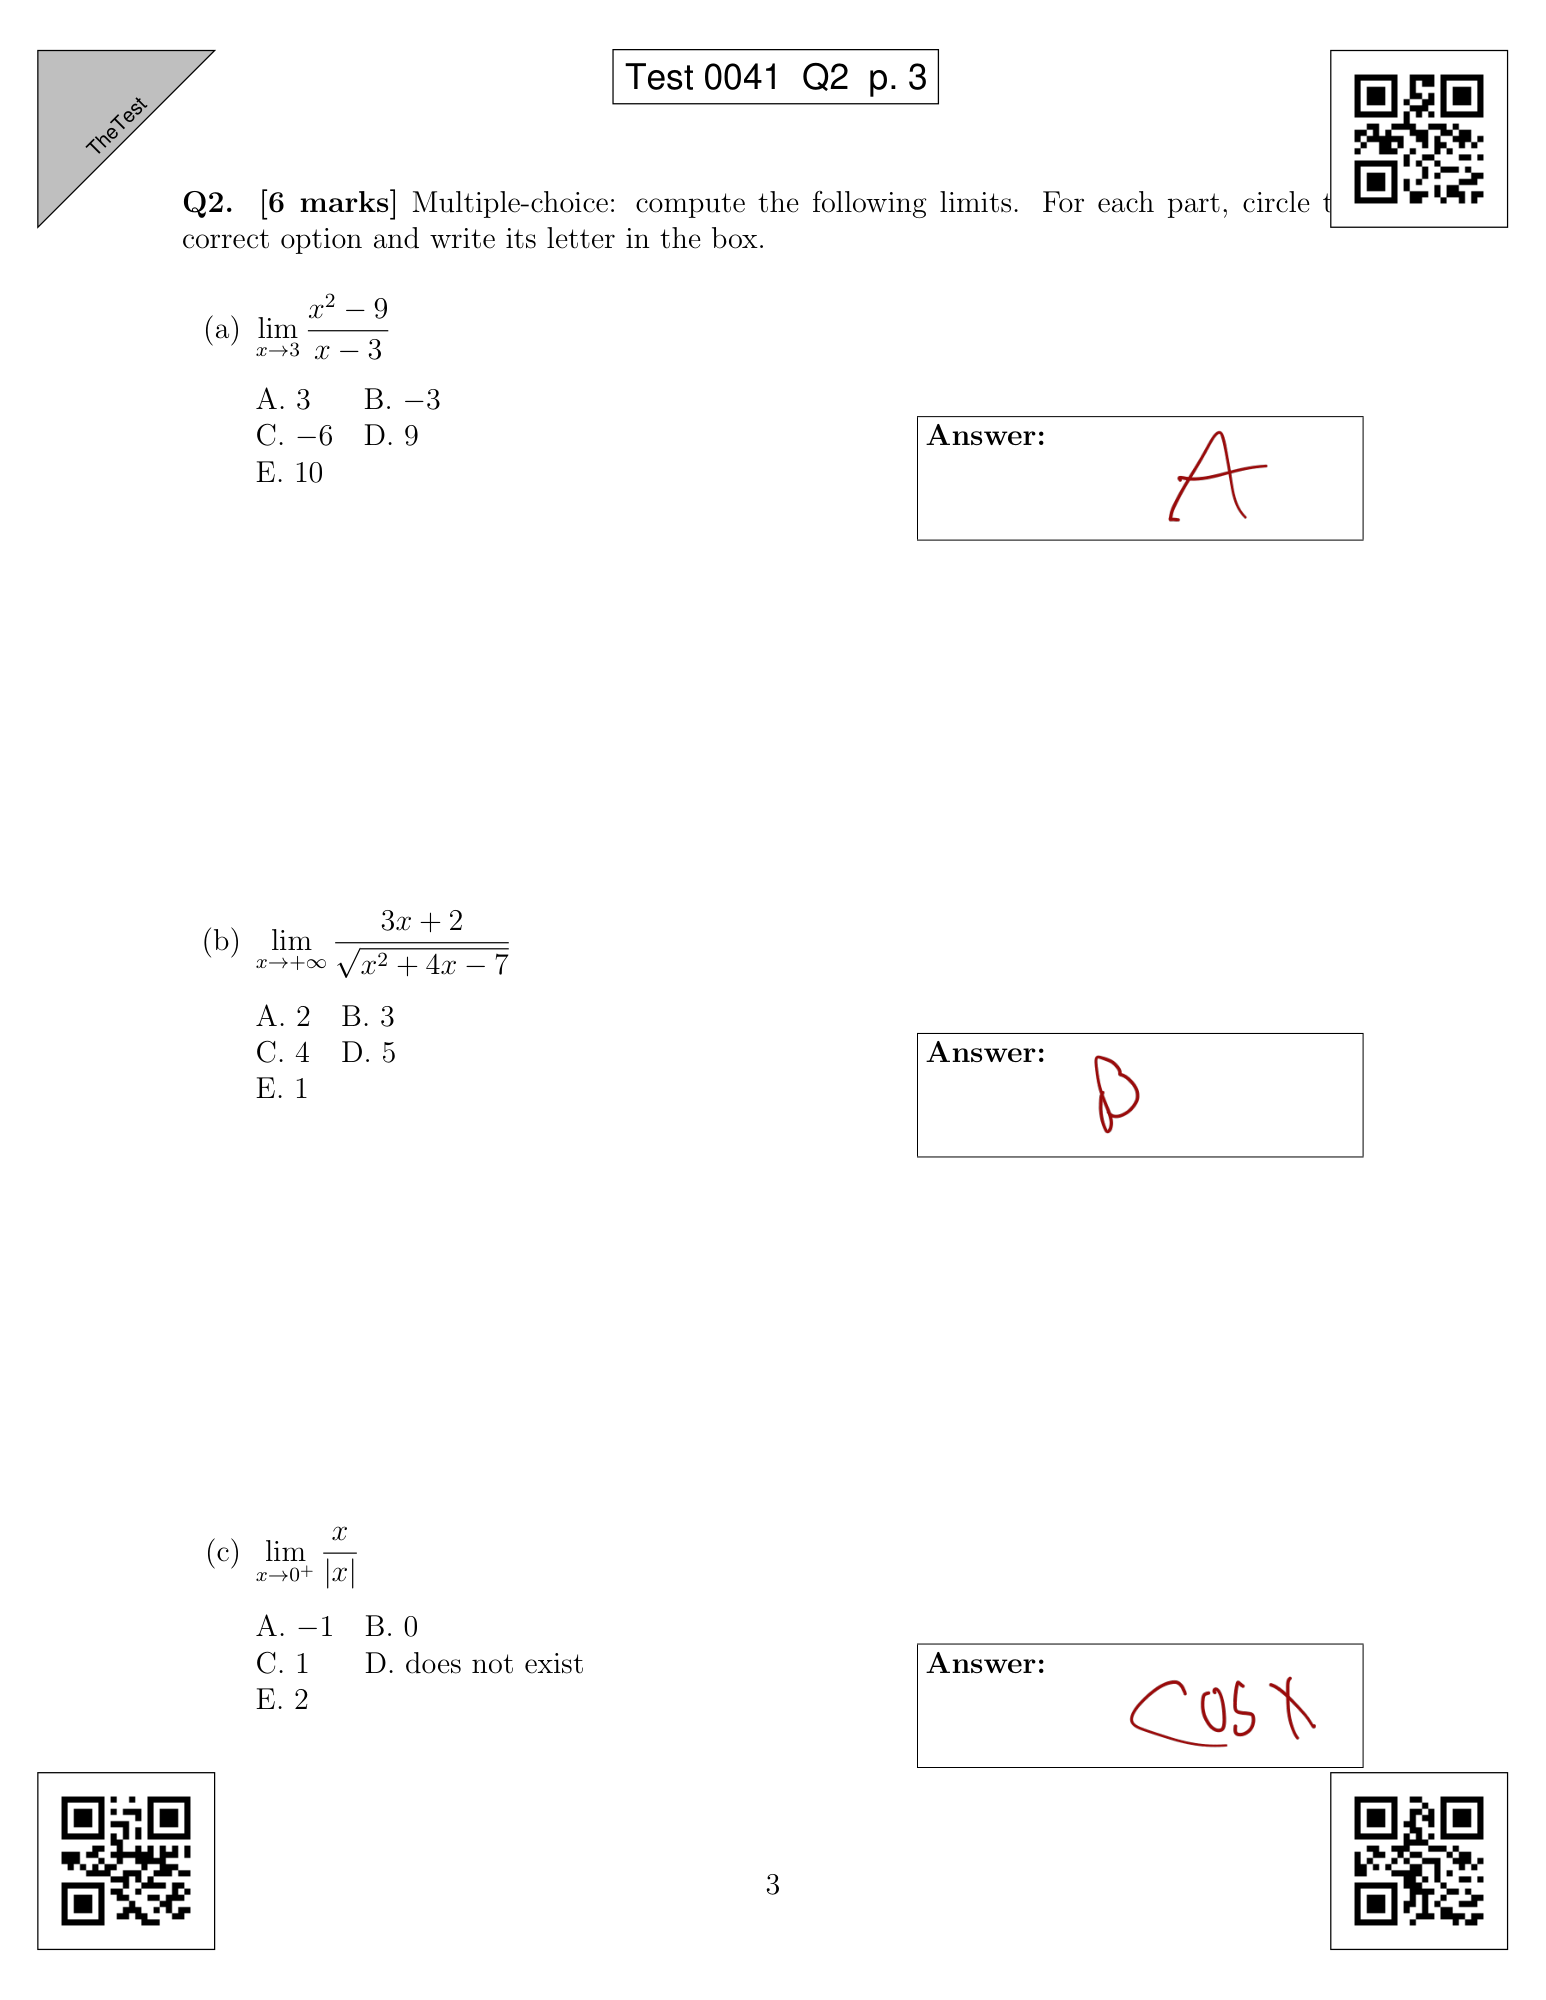 TheTest
Test 0041 Q2 p. 3
Q2. [6 marks] Multiple-choice: compute the following limits. For each part, circle t
correct option and write its letter in the box.
(a) lim_{x→3} \frac{x^2 − 9}{x − 3}
A. 3 B. −3
C. −6 D. 9
E. 10
Answer: A
(b) lim_{x→+∞} \frac{3x + 2}{\sqrt{x^2 + 4x − 7}}
A. 2 B. 3
C. 4 D. 5
E. 1
Answer:
(c) lim_{x→0^+} \frac{x}{|x|}
A. −1 B. 0
C. 1 D. does not exist
E. 2
Answer: cos x
3